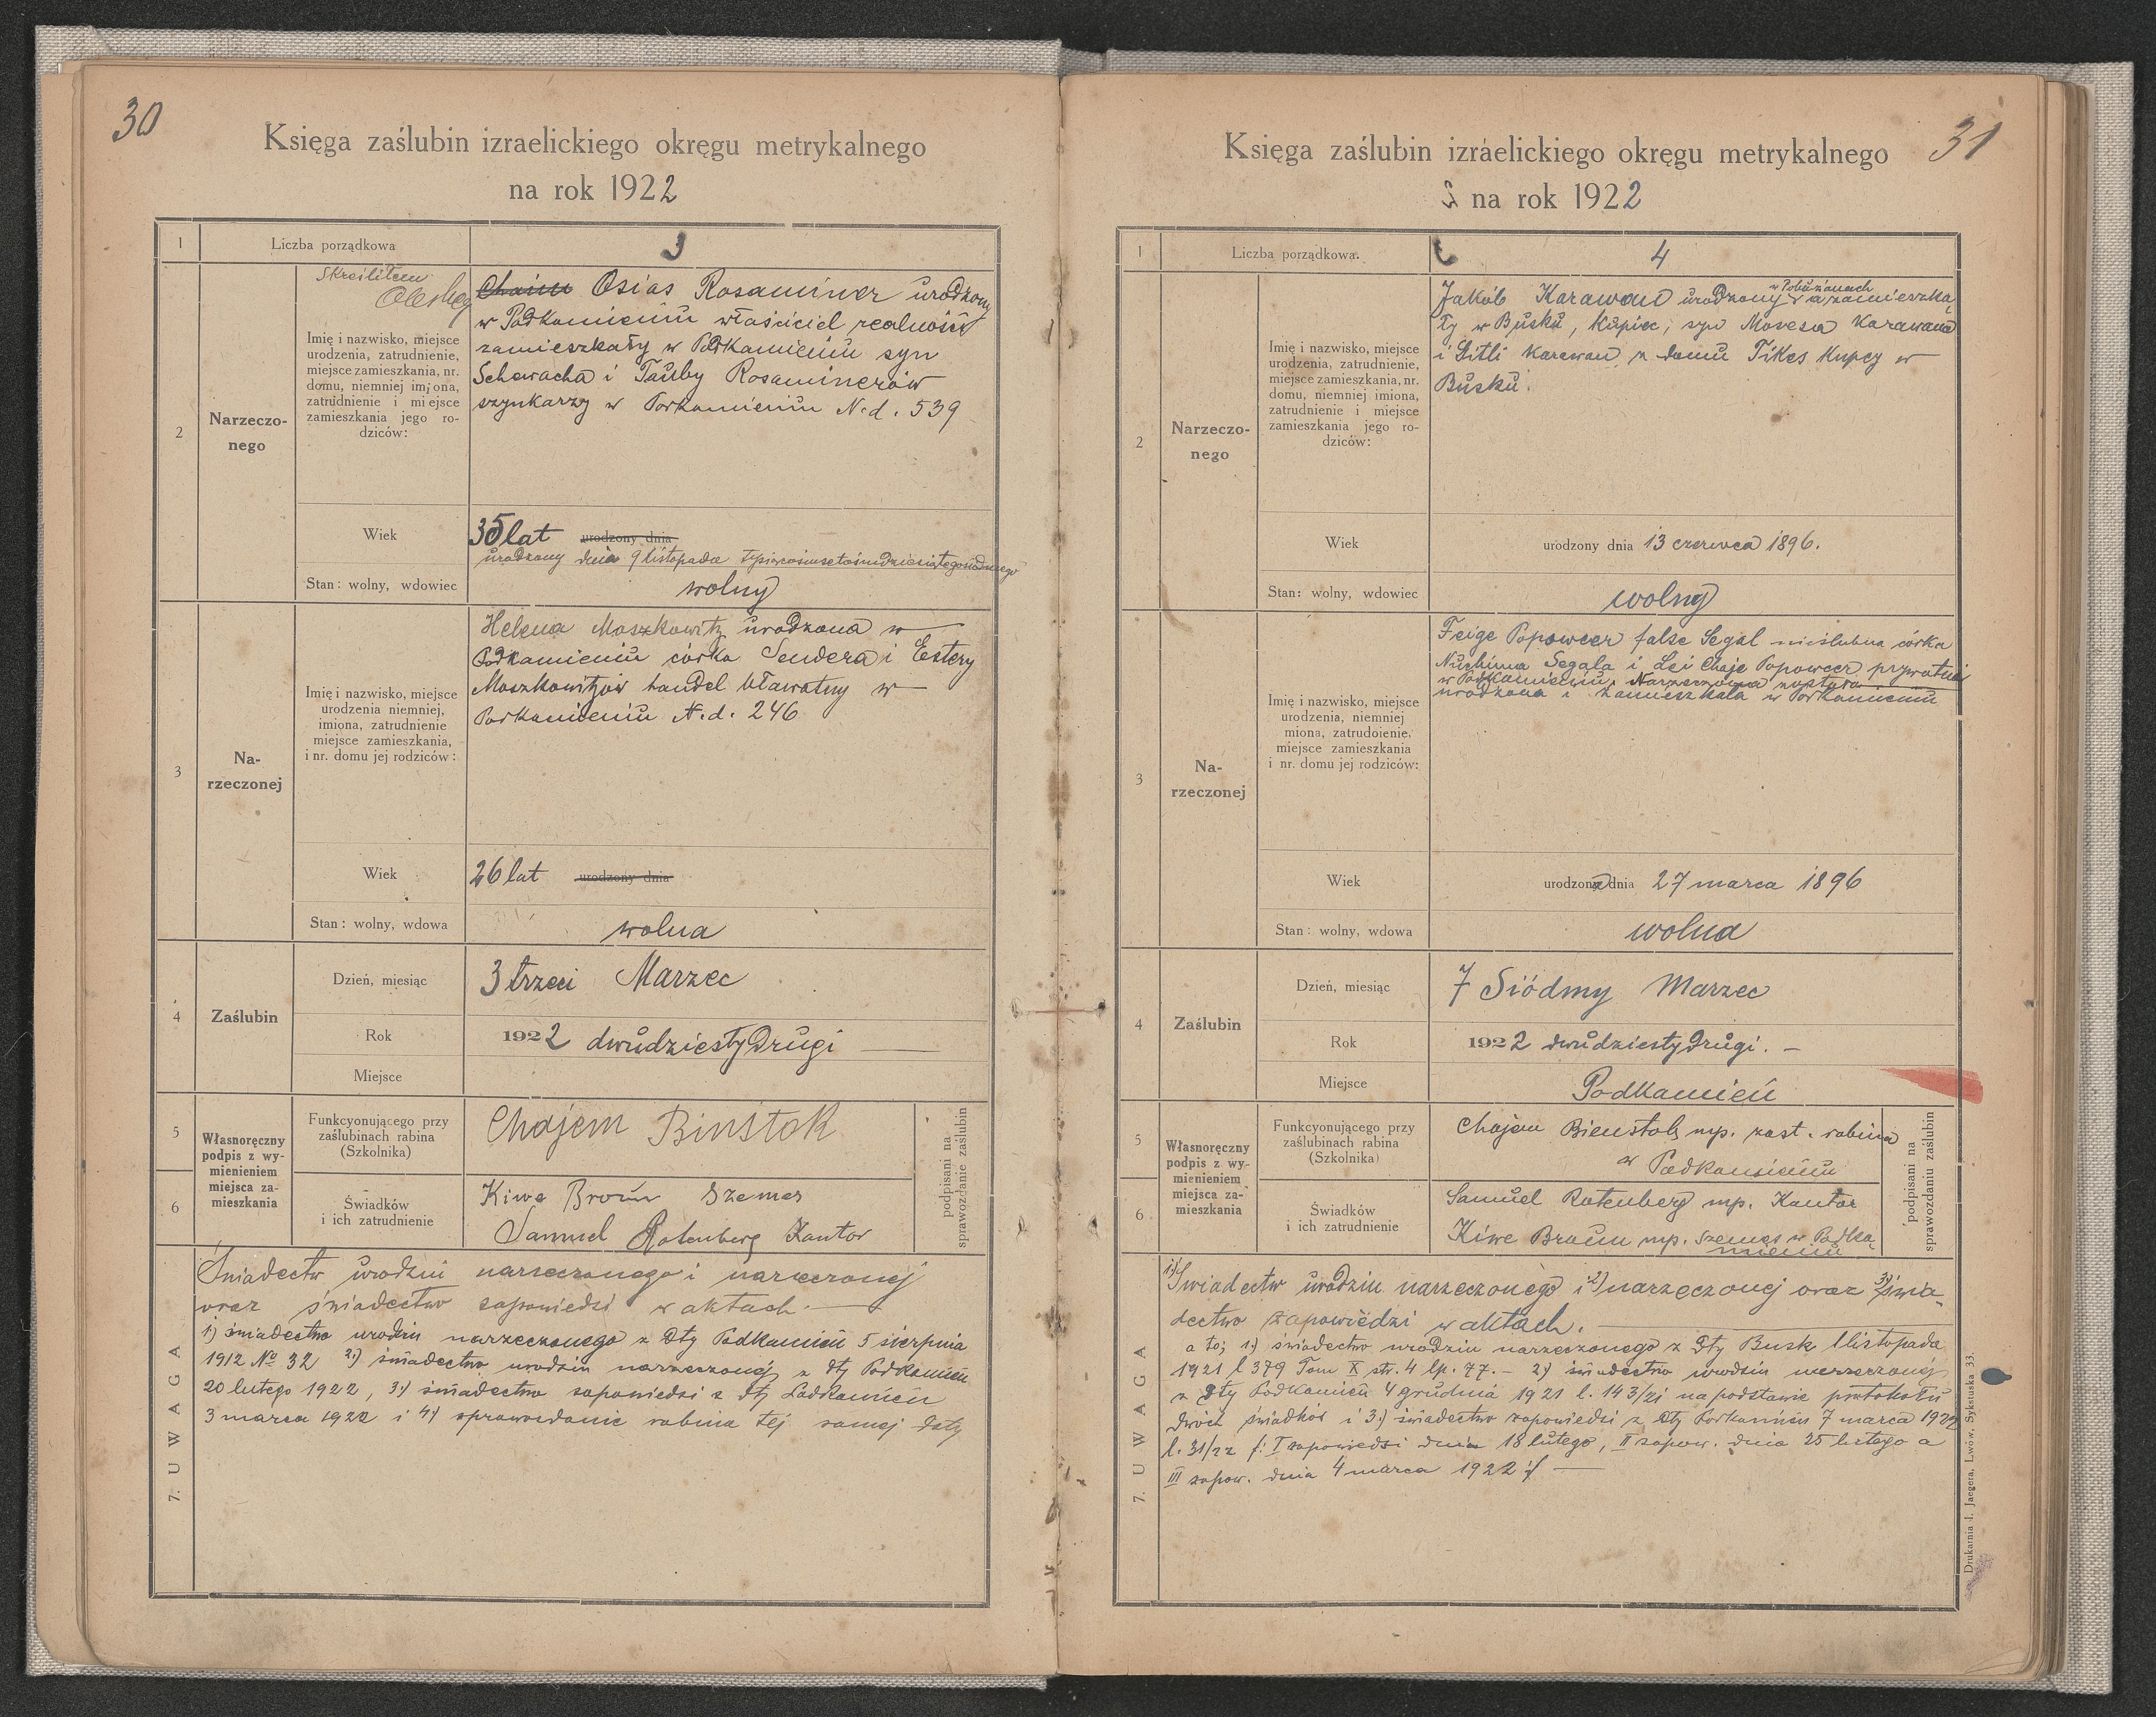 30
Księga zaślubin izraelickiego okręgu metrykalnego
na rok 1922
1
Liczba porządkowa
3
2
Narzeczo-
nego
Skreśliłem
Imię i nazwisko, miejsce
urodzenia, zatrudnienie,
miejsce zamieszkania, nr.
domu, niemniej imiona,
zatrudnienie i miejsce
zamieszkania jego ro-
dziców:
Chaim Osias Rosaminer urodzony
w Podkamieniu właściciel realności
zamieszkały w Podkamieniu syn
Schewacha i Tauby Rosaminerów
szynkarzy w Podkamieniu N.d. 539
Wiek
35 lat urodzony dnia
urodzony dnia 9 listopada
Stan: wolny, wdowiec
wolny
3
Na-
rzeczonej
Imię i nazwisko, miejsce
urodzenia niemniej,
imiona, zatrudnienie
miejsce zamieszkania,
i nr. domu jej rodziców:
Helena Moszkowitz urodzona w
Podkamieniu córka Sendera i Estery
Moszkowitzów handel bławatny w
Podkamieniu N.d. 246
Wiek
26 lat urodzony dnia
Stan: wolny, wdowa
wolna
4
Zaślubin
Dzień, miesiąc
3 trzeci Marzec
Rok
1922 dwudziesty drugi
Miejsce
5
6
Własnoręczny
podpis z wy-
mienieniem
miejsca za-
mieszkania
Funkcyonującego przy
zaślubinach rabina
(Szkolnika)
Chajem Binstok
Świadków
i ich zatrudnienie
Kiwe Broun Szemes
Samuel Rotenberg Kantor
podpisani na
sprawozdanie zaślubin
7. UWAGA
Świadectw urodzin narzeczonego i narzeczonej
oraz świadectwo zapowiedzi w aktach.
1) świadectwo urodzin narzeczonego z dty Podkamień 5 sierpnia
1912 No 32 2.) świadectwo urodzin narzeczonej z dty Podkamień
20 lutego 1922, 3.) świadectwo zapowiedzi z dty Podkamień
3 marca 1922 i 4) sprawozdanie rabina tej samej daty
31
Księga zaślubin izraelickiego okręgu metrykalnego
na rok 1922
1
Liczba porządkowa.
4
2
Narzeczo-
nego
Imię i nazwisko, miejsce
urodzenia, zatrudnienie,
miejsce zamieszkania, nr.
domu, niemniej imiona,
zatrudnienie i miejsce
zamieszkania jego ro-
dziców:
w Pobużanach
Jakób Karawan urodzony a zamieszka-
ły w Busku, kupiec, syn Mosesa Karawana
i Gitli Karawan z domu Tikes kupcy w
Busku.
Wiek
urodzony dnia 13 czerwca 1896.
Stan: wolny, wdowiec
wolny
3
Na-
rzeczonej
Imię i nazwisko, miejsce
urodzenia, niemniej
miona, zatrudoienie,
miejsce zamieszkania
i nr. domu jej rodziców:
Feige Popowcer false Segal nieślubna córka
Nuchima Segala i Lei Chaje Popowcer prywatni
w Podkamieniu. Narzeczona
urodzona i zamieszkała w Podkamieniu
Wiek
urodzona dnia 27 marca 1896
Stan: wolny, wdowa
wolna
4
Zaślubin
Dzień, miesiąc
7 Siódmy Marzec
Rok
1922 dwudziesty drugi. –
Miejsce
Podkamień
5
6
Własnoręczny
podpis z wy-
mienieniem
miejsca za-
mieszkania
Funkcyonującego przy
zaślubinach rabina
(Szkolnika)
Chajem Bienstok mp. zast. rabina
w Podkamieniu
Świadków
i ich zatrudnienie
Samuel Rotenberg mp. Kantor
Kiwe Braun mp. szemes w Podka-
mieniu
podpisani na
sprawozdaniu zaślubin
7. UWAGA
1) Świadectw urodzin narzeczonego i 2) narzeczonej oraz 3) świa-
dectwo zapowiedzi w aktach.
a to; 1) świadectwo urodzin narzeczonego z dty Busk listopada
1921 l 379 Tom X str. 4 lp. 77. – 2) świadectwo urodzin narzeczonej
z dty Podkamień 4 grudnia 1921 l. 143/21 na podstawie protokołu
dwóch świadków i 3.) świadectwo zapowiedzi z dty Podkamień 7 marca 1922
l. 31/22 /: I zapowiedzi dnia 18 lutego, II zapow. dnia 25 lutego a
III zapow. dnia 4 marca 1922 :/ –
Drukarnia I. Jaegera, Lwów, Sykstuska 33.